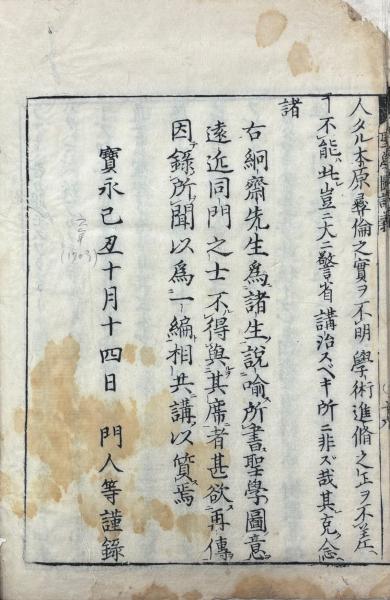 人タル本原彝倫之實ヲ不明學術進脩之正ヲ不差
不能此豈ニ大ニ警省講治スベキ所ニ非ズ哉其克念
諸
右絅齋先生爲諸生說喩所書聖學圖意
遠近同門之士不得與其席者甚欲再傳
因錄所聞以爲一編相共講以質焉
寶永己丑十月十四日 門人等謹錄
六年
(1709)